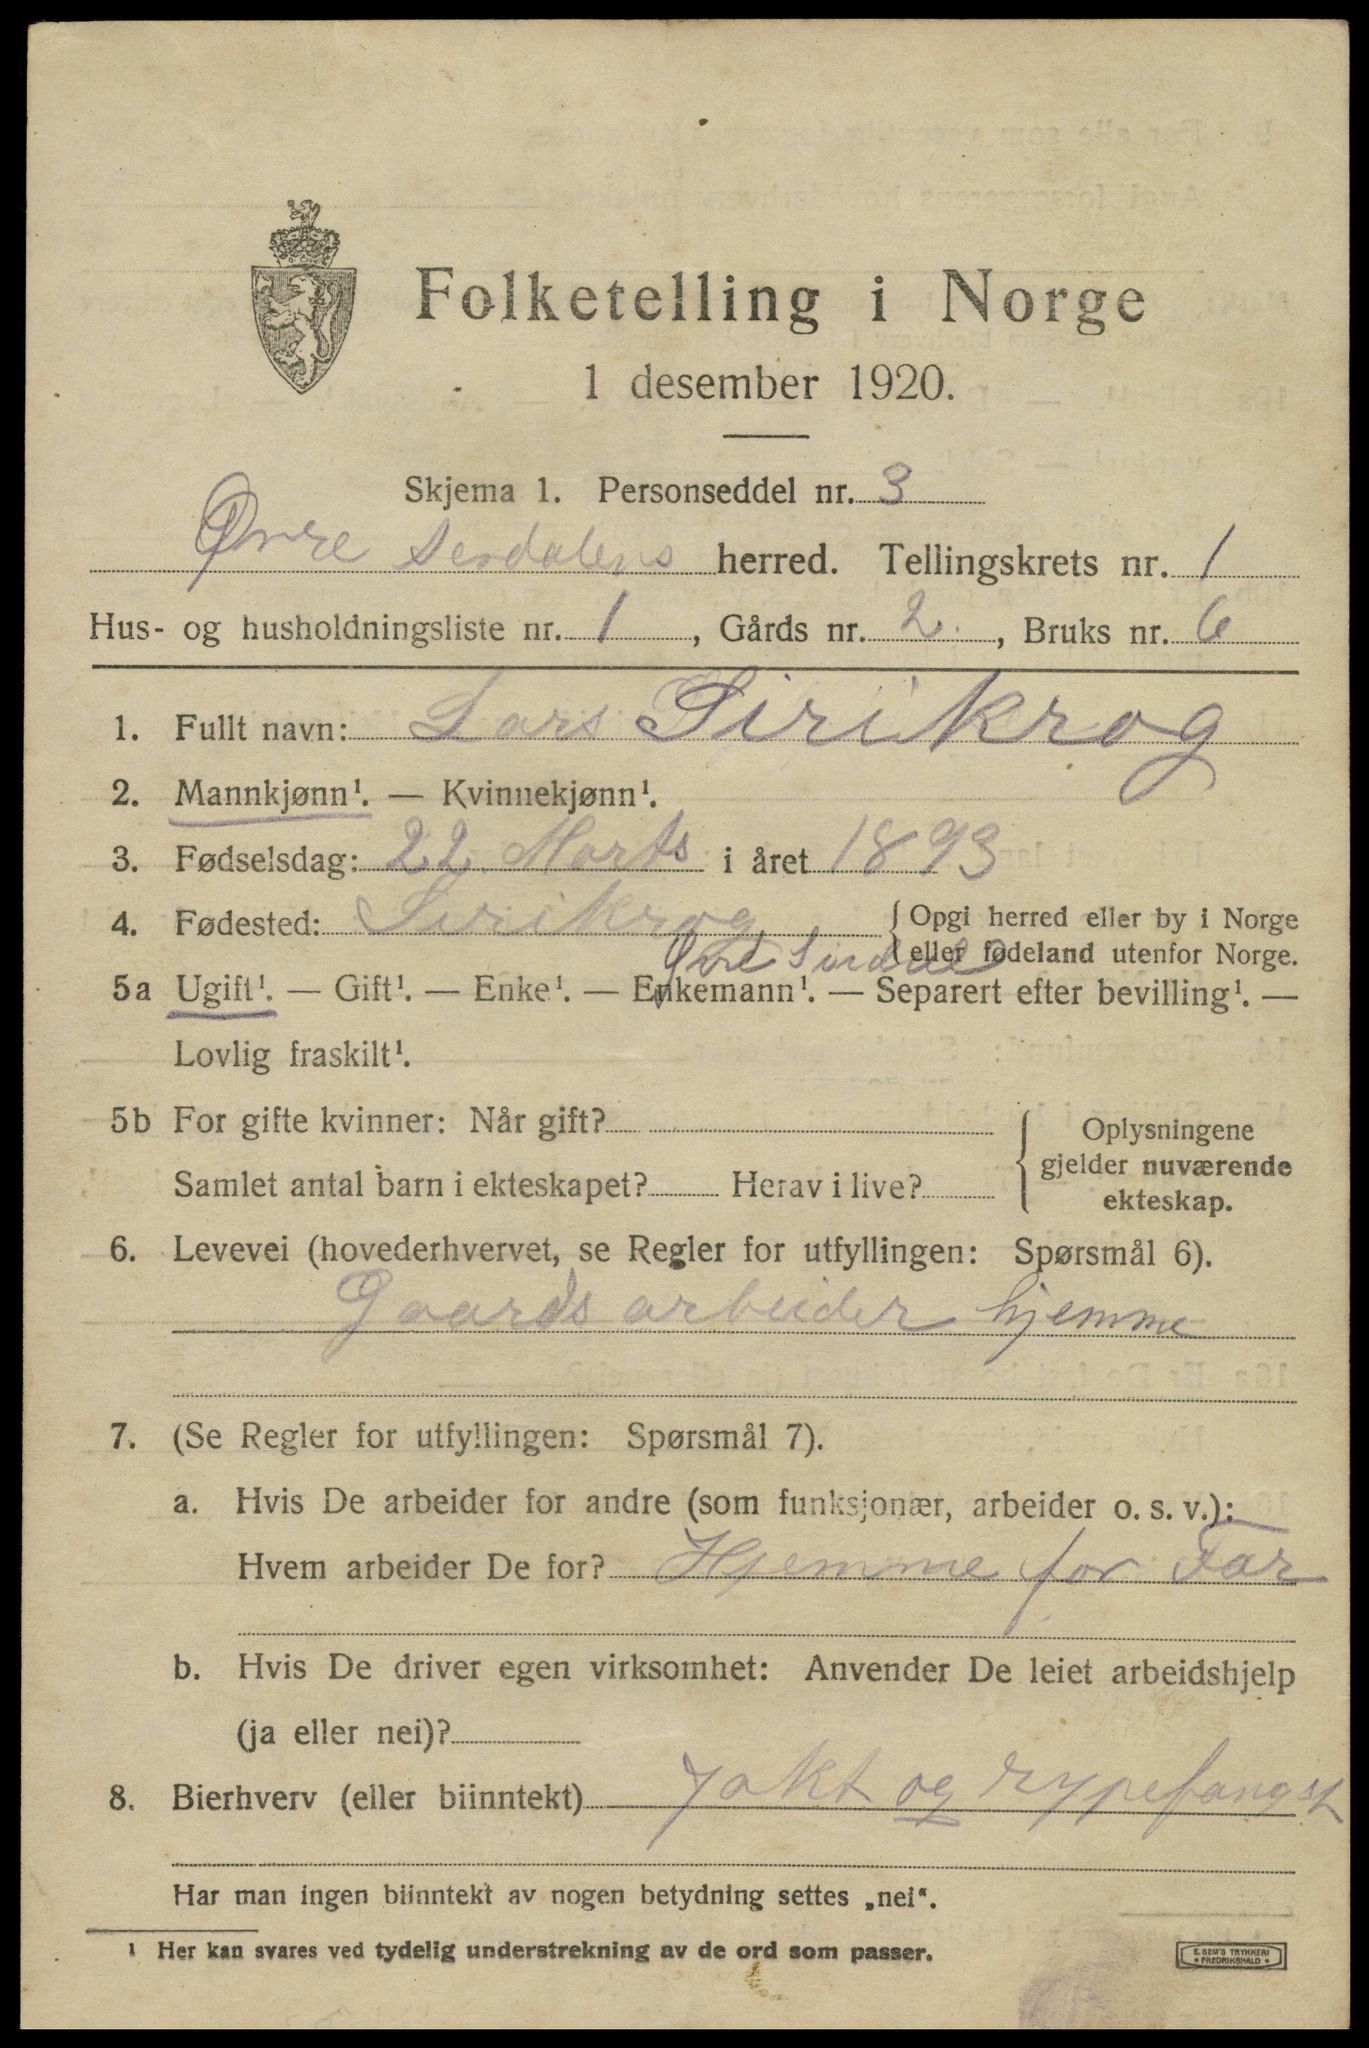 Folketelling i Norge
1 desember 1920.
Skjema 1. Personseddel nr. 3
Øvre Serdalens herred. Tellingskrets nr. 1
Hus- og husholdningsliste nr. 1, Gårds nr. 2., Bruks nr. 6
1. Fullt navn: Lars Sirikrog
2. Mannkjønn¹. — Kvinnekjønn¹.
3. Fødselsdag: 22 Marts i året 1893
4. Fødested: Sirikrog { Opgi herred eller by i Norge
eller fødeland utenfor Norge.
Øvre Sirdal
5a Ugift¹. — Gift¹. — Enke¹. — Enkemann¹. — Separert efter bevilling¹. —
Lovlig fraskilt¹.
5b For gifte kvinner: Når gift?
Samlet antal barn i ekteskapet? Herav i live?
{ Oplysningene
gjelder nuværende
ekteskap.
6. Levevei (hovederhvervet, se Regler for utfyllingen: Spørsmål 6).
Gaards arbeider hjemme
7. (Se Regler for utfyllingen: Spørsmål 7).
a. Hvis De arbeider for andre (som funksjonær, arbeider o. s. v.):
Hvem arbeider De for? Hjemme for Far
b. Hvis De driver egen virksomhet: Anvender De leiet arbeidshjelp
(ja eller nei)?
8. Bierhverv (eller biinntekt) Jakt og rypefangst
Har man ingen biinntekt av nogen betydning settes „nei“.
¹ Her kan svares ved tydelig understrekning av de ord som passer.
E. SEM'S TRYKKERI
• FREDRIKSHALD •